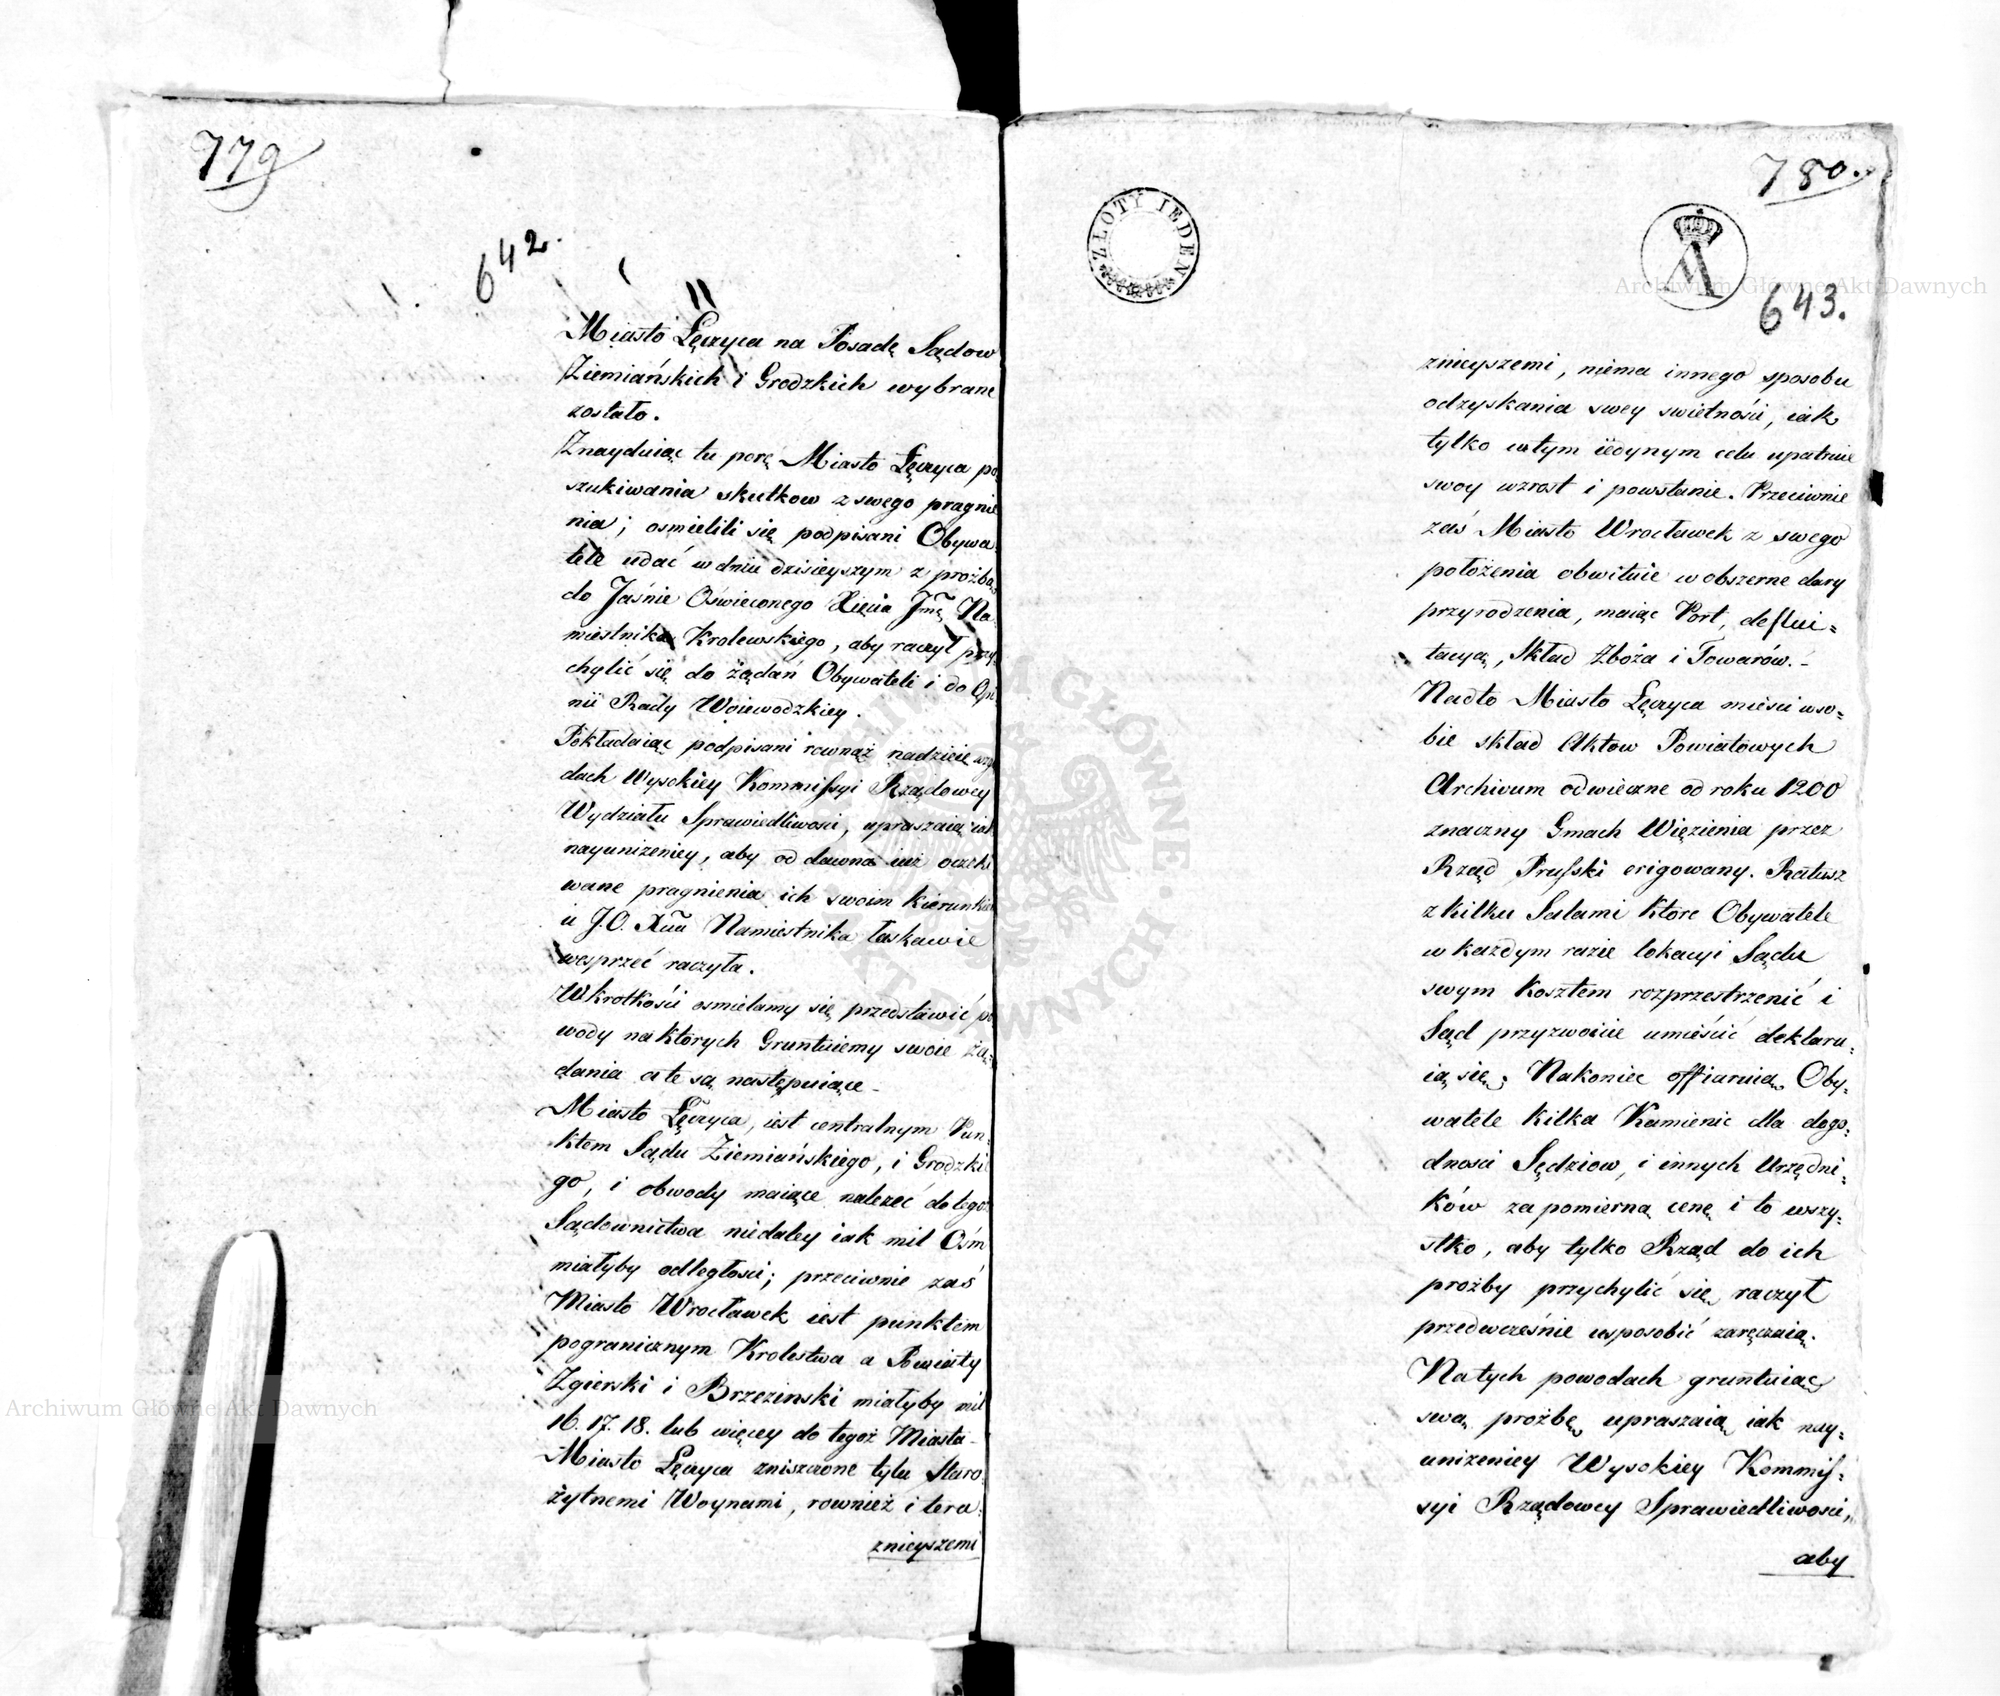 779
642.
Miasto Łęczyca na Posadę Sądow
Ziemiańskich i Grodzkich wybrane
zostało.
Znayduiąc tu porę Miasto Łęczyca po
szukiwania skutkow z swego pragnie
nia; osmielili się podpisani Obywa
tele udać w dniu dzisieyszym z proźbą
do Jaśnie Oświeconego Xięcia Jmę Na
miestnika Krolewskiego, aby raczył przy
chylić się do żądań Obywateli i do Opi
nii Rady Woiewodzkiey.
Pokładaiąc podpisani rownąż nadzieię wzglę
dach Wysokiey Kommissyi Rządowey
Wydziału Sprawiedliwosci, upraszaią iak
nayuniżeniey, aby od dawna iuż oczeki
wane pragnienia ich swoim kierunkiem
u J.O. Xcia Namiestnika łaskawie
wesprzeć raczyła.
Wkrotkości osmielamy się przedstawić po
wody na ktorych Gruntuiemy swoie żą=
dania a te są następuiące_
Miasto Łęczyca, iest centralnym Pun=
ktem Sądu Ziemiańskiego, i Grodzkie
go, i obwody maiące należeć do tegoż
Sądownictwa niedaley iak mil Ośm
miałyby odległosci; przeciwnie zaś
Miasto Wrocławek iest punktem
pogranicznym Krolestwa a Powiaty
Zgierski i Brzezinski miałyby mil
16. 17. 18. lub więcey do tegoż Miasta_
Miasto Łęczyca zniszczone tylu Staro=
żytnemi Woynami, rownież i tera=
znieyszemi
780.
ZŁOTY IEDEN
A
643.
znieyszemi, niema innego sposobu
odzyskania swey swietności, iak
tylko wtym iedynym celu upatruie
swoy wzrost i powstanie. Przeciwnie
zaś Miasto Wrocławek z swego
położenia obwituie w obszerne dary
przyrodzenia, maiąc Port, deflui=
tacyą, Skład Zboża i Towarów._
Nadto Miasto Łęczyca miesci wso=
bie skład Aktow Powiatowych
Archivum odwieczne od roku 1200
znaczny Gmach Więzienia przez
Rząd Pruski erigowany. Ratusz
z kilku Salami ktore Obywatele
w każdym razie lokacyi Sądu
swym kosztem rozprzestrzenić i
Sąd przyzwoicie umieścić deklaru=
ią się. Nakoniec offiaruią Oby=
watele kilka Kamienic dla dogo=
dnosci Sędziow, i innych Urzędni=
ków za pomierną cenę i to wszy=
stko, aby tylko Rząd do ich
proźby przychylić się raczył
przedwcześnie usposobić zaręczaią.
Na tych powodach gruntuiąc
swą proźbę upraszaią iak nay=
uniżeniey Wysokiey Kommis=
syi Rządowey Sprawiedliwosci,
aby
Archiwum Główne Akt Dawnych
Archiwum Główne Akt Dawnych
ARCHIWUM GŁÓWNE AKT DAWNYCH